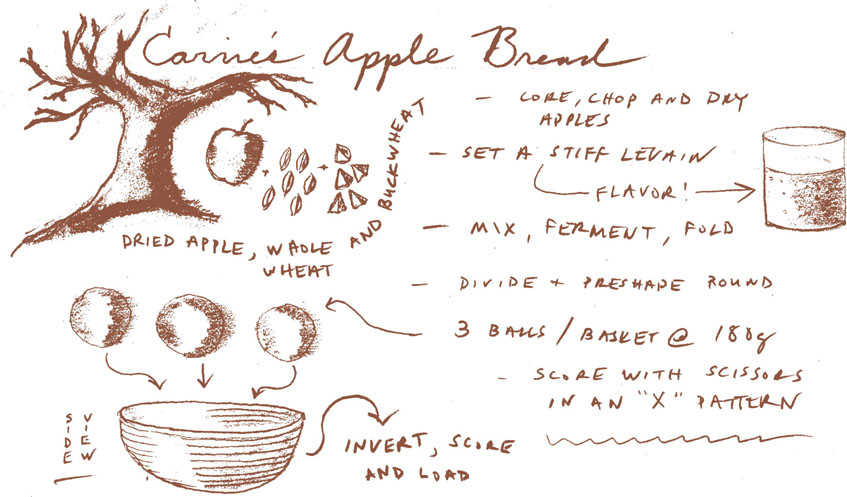 Carrie's Apple Bread
- CORE, CHOP AND DRY
APPLES
- SET A STIFF LEVAIN
FLAVOR!
- MIX, FERMENT, FOLD
- DIVIDE + PRESHAPE ROUND
3 BALLS / BASKET @ 180g
- SCORE WITH SCISSORS
IN AN "X" PATTERN
DRIED APPLE, WHOLE
WHEAT
AND BUCKWHEAT
SIDE
VIEW
INVERT, SCORE
AND LOAD